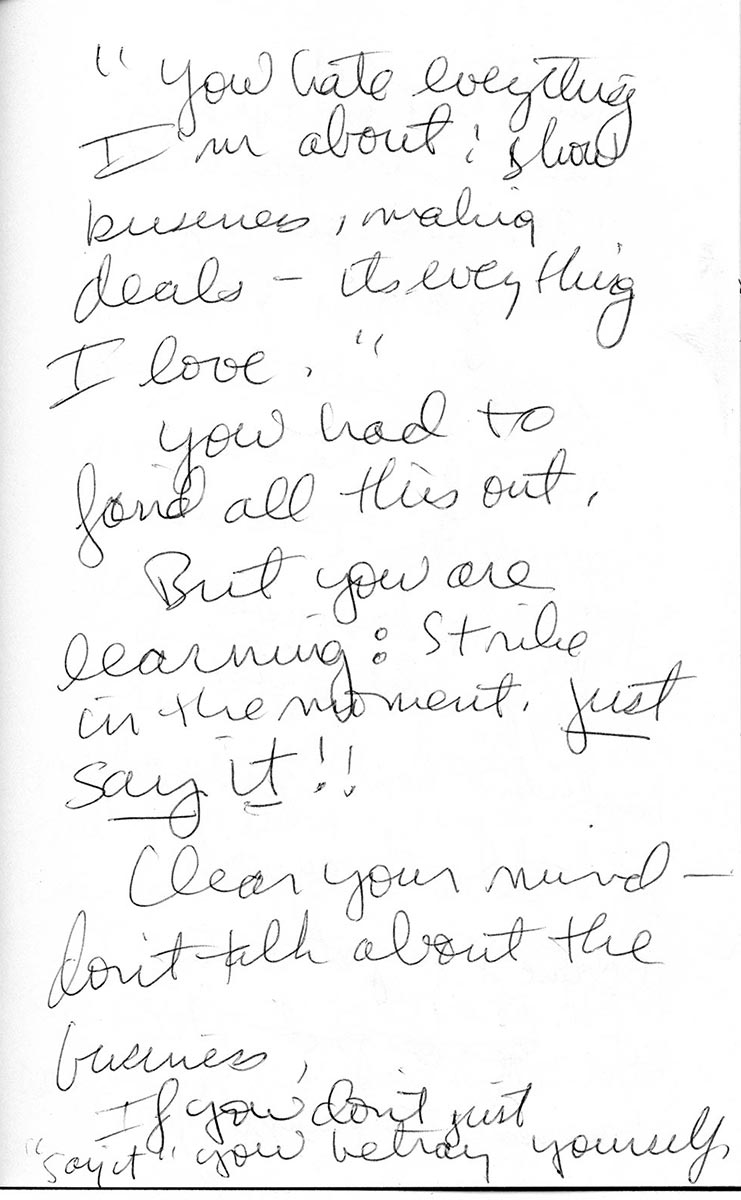 "You hate everything
I'm about: show
business, making
deals – its everything
I love."
You had to
find all this out.
But you are
learning: Strike
in the moment. Just
say it!!
Clear your mind –
don't talk about the
business,
If you don't just
"say it" you betray yourself.